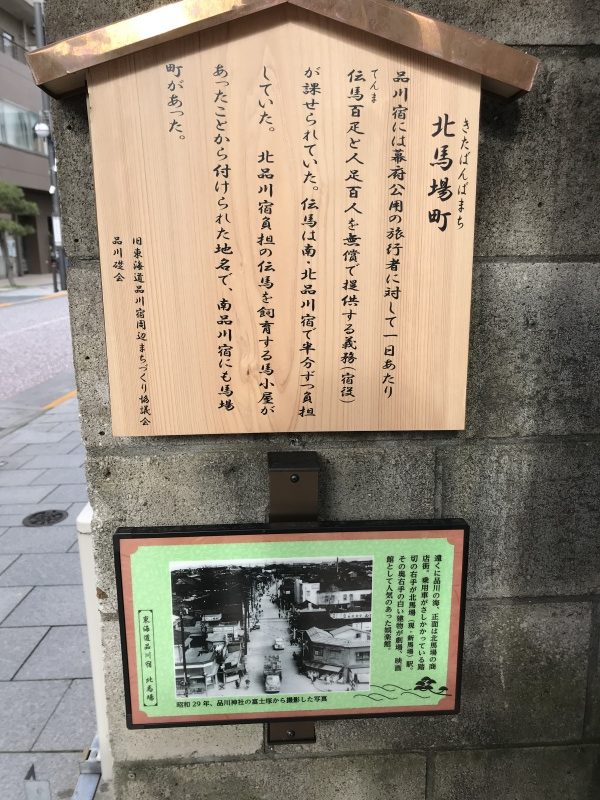 きたばんばまち
北馬場町
品川宿には幕府公用の旅行者に対して一日あたり
てんま
伝馬百疋と人足百人を無償で提供する義務(宿役)
が課せられていた。伝馬は南・北品川宿で半分ずつ負担
していた。 北品川宿負担の伝馬を飼育する馬小屋が
あったことから付けられた地名で、南品川宿にも馬場
町があった。
旧東海道品川宿周辺まちづくり協議会
品川礎会
遠くに品川の海、正面は北馬場の商
店街。乗用車がさしかかっている踏
切の右手が北馬場(現・新馬場)駅。
その奥右手の白い建物が劇場、映画
館として人気のあった娯楽館。
昭和29年、品川神社の富士塚から撮影した写真
【東海道品川宿 北馬場】